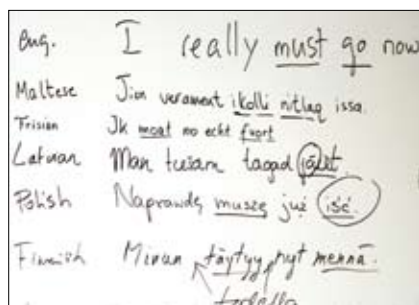 Eng. I really must go now
Maltese Jien verament ikolli nitlaq issa.
Frisian Ik moat no echt fuort
Latvian Man tagad
Polish Naprawdę muszę już iść.
Finnish Minun täytyy nyt mennä.
todella